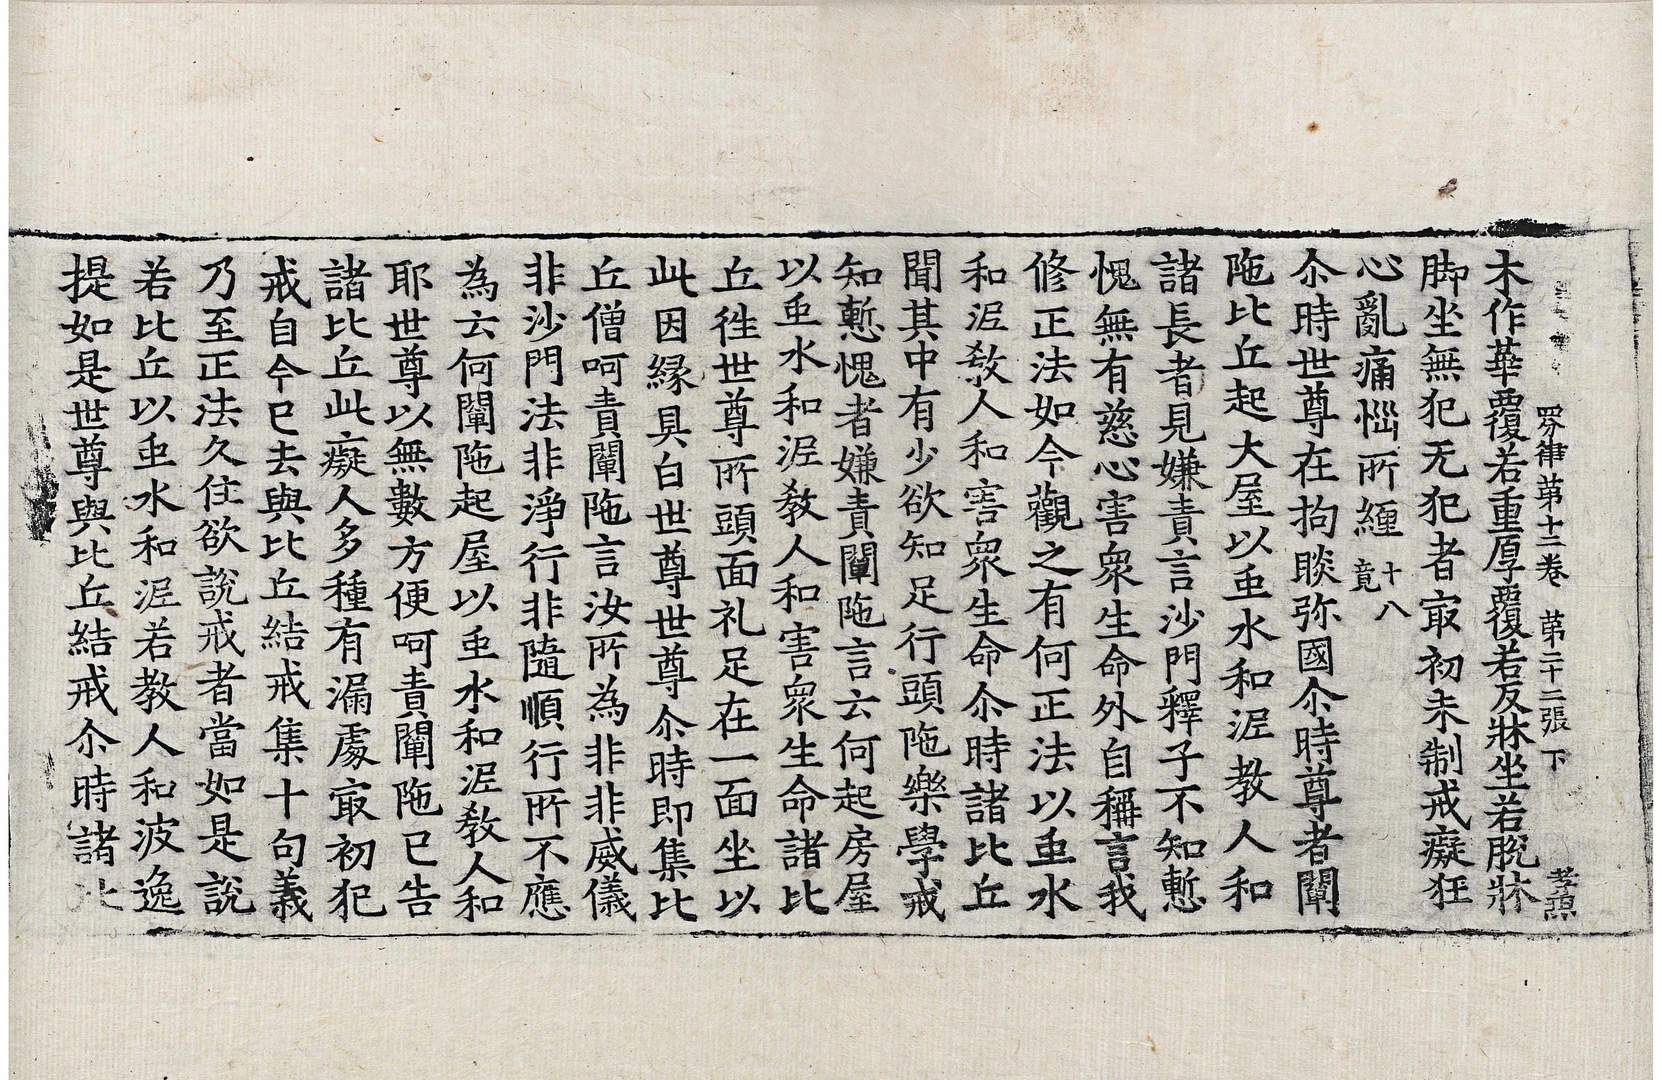 四分律第十二卷 第二十二張 下
木作華覆若重厚覆若反牀坐若脫牀
脚坐無犯无犯者㝡初未制戒癡狂
心亂痛惱所纏十八竟
尒時世尊在拘睒弥國尒時尊者闡
陁比丘起大屋以䖝水和泥教人和
諸長者見嫌責言沙門釋子不知慙
愧無有慈心害衆生命外自稱言我
修正法如今觀之有何正法以䖝水
和泥教人和害衆生命尒時諸比丘
聞其中有少欲知足行頭陁樂學戒
知慙愧者嫌責闡陁言云何起房屋
以䖝水和泥教人和害衆生命諸比
丘往世尊所頭面礼足在一面坐以
此因縁具白世尊世尊尒時即集比
丘僧呵責闡陁言汝所為非非威儀
非沙門法非淨行非隨順行所不應
為云何闡陁起屋以䖝水和泥教人和
耶世尊以無數方便呵責闡陁已告
諸比丘此癡人多種有漏處㝡初犯
戒自今已去與比丘結戒集十句義
乃至正法久住欲說戒者當如是說
若比丘以䖝水和泥若教人和波逸
提如是世尊與比丘結戒尒時諸比